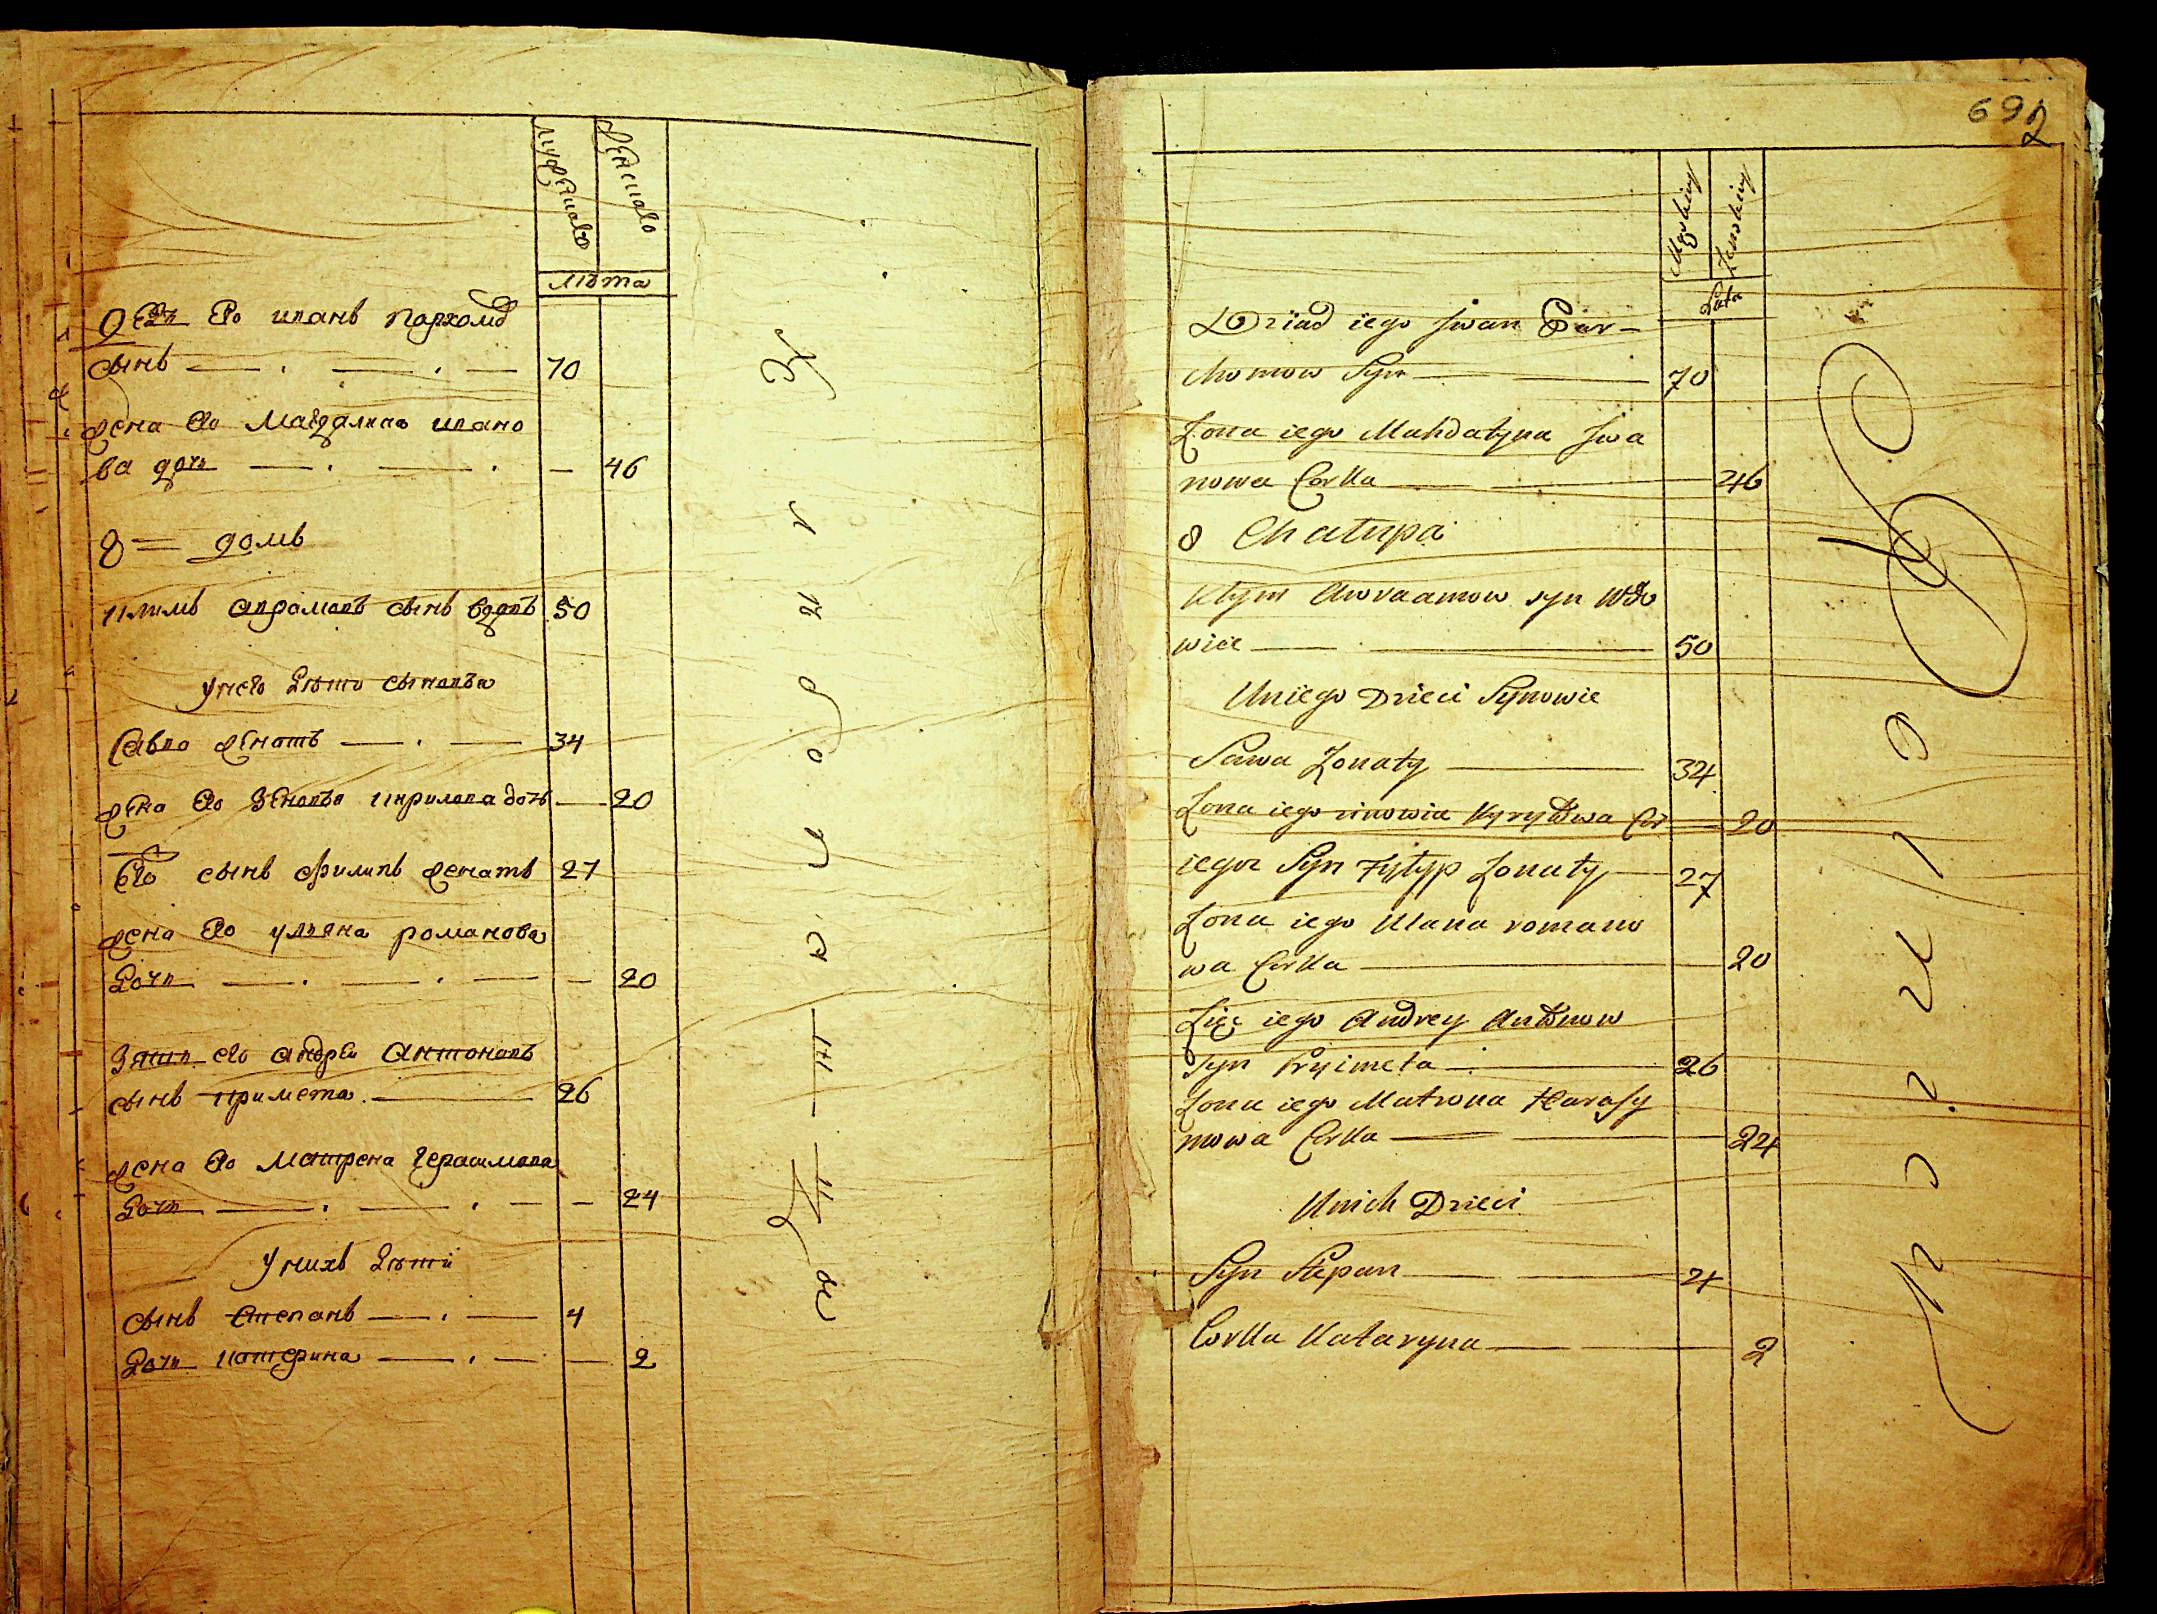 мужеска
женска
лѣта
Дедъ Его иванъ пархомо
сынъ 70
жена Его Магдалина ивано
ва дочь 46
8 домъ
климъ аврамовъ сынъ вдовъ 50
у него дѣти сыновья
Савва женатъ 34
жена Его Зеновья кирилова дочь 20
Его сынъ филипъ женатъ 27
жена Его ульяна романова
дочь 20
Зять его андрей антоновъ
сынъ примета 26
жена Его матрена герасимова
дочь 24
у нихъ дѣти
сынъ степанъ 4
дочь катерина 2
692
Męskiey
Żenskiey
Lata
Dziad iego Jwan Par-
chomow Syn 70
Żona iego Mahdalyna Jwa
nowa Corka 46
8 Chałupa
Klym Awraamow syn Wdo
wiec 50
Uniego Dzieci Synowie
Sawa Żonaty 34
Żona iego zinowia Kyryłowa Cor 20
iego Syn Fylyp Żonaty 27
Żona iego Ulana romano
wa Corka 20
Zięć iego Andrey Antonow
Syn Pryimeta 26
Żona iego Matrona Harasy
mowa Corka 24
Unich Dzieci
Syn Stepan 4
Corka Kataryna 2